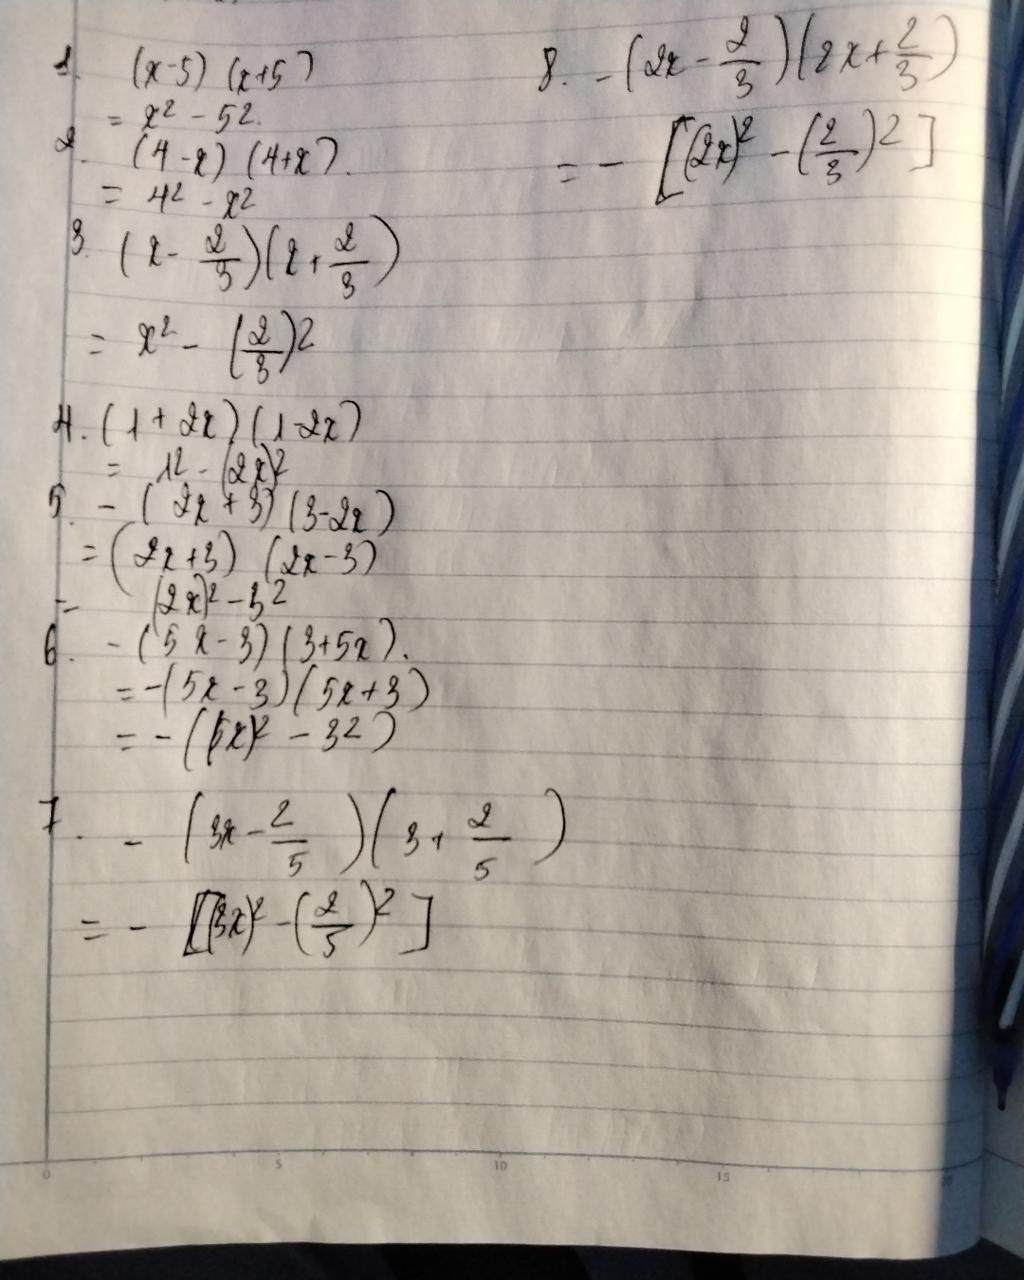 1. (x-5) (x+5)
= x² - 5².
2. (4-x) (4+x).
= 4² - x²
3. (x - 2/3)(x + 2/3)
= x² - (2/3)²
4. (1 + 2x) (1-2x)
= 1² - (2x)²
5. - (2x + 3) (3-2x)
= (2x+3) (2x-3)
= (2x)² - 3²
6. - (5x - 3) (3+5x).
= -(5x - 3)(5x+3)
= - ((5x)² - 3²)
7. - (3x - 2/5)(3 + 2/5)
= - [(3x)² - (2/5)²]
8. - (2x - 2/3)(2x + 2/3)
= - [(2x)² - (2/3)²]
0 5 10 15 20